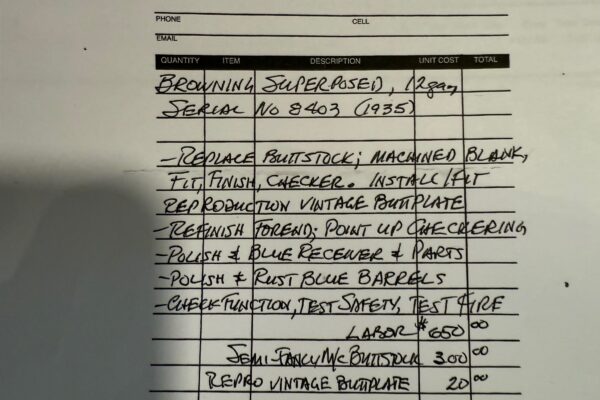 PHONE CELL
EMAIL
QUANTITY ITEM DESCRIPTION UNIT COST TOTAL
BROWNING SUPERPOSED, 12ga,
SERIAL NO 8403 (1935)
-REPLACE BUTTSTOCK; MACHINED BLANK,
FIT, FINISH, CHECKER. INSTALL/FIT
REPRODUCTION VINTAGE BUTTPLATE
-REFINISH FOREND; POINT UP CHECKERING
-POLISH & BLUE RECEIVER & PARTS
-POLISH & RUST BLUE BARRELS
-CHECK FUNCTION, TEST SAFETY, TEST FIRE
LABOR $650 00
SEMI-FANCY M/C BUTTSTOCK 300 00
REPRO VINTAGE BUTTPLATE 20 00